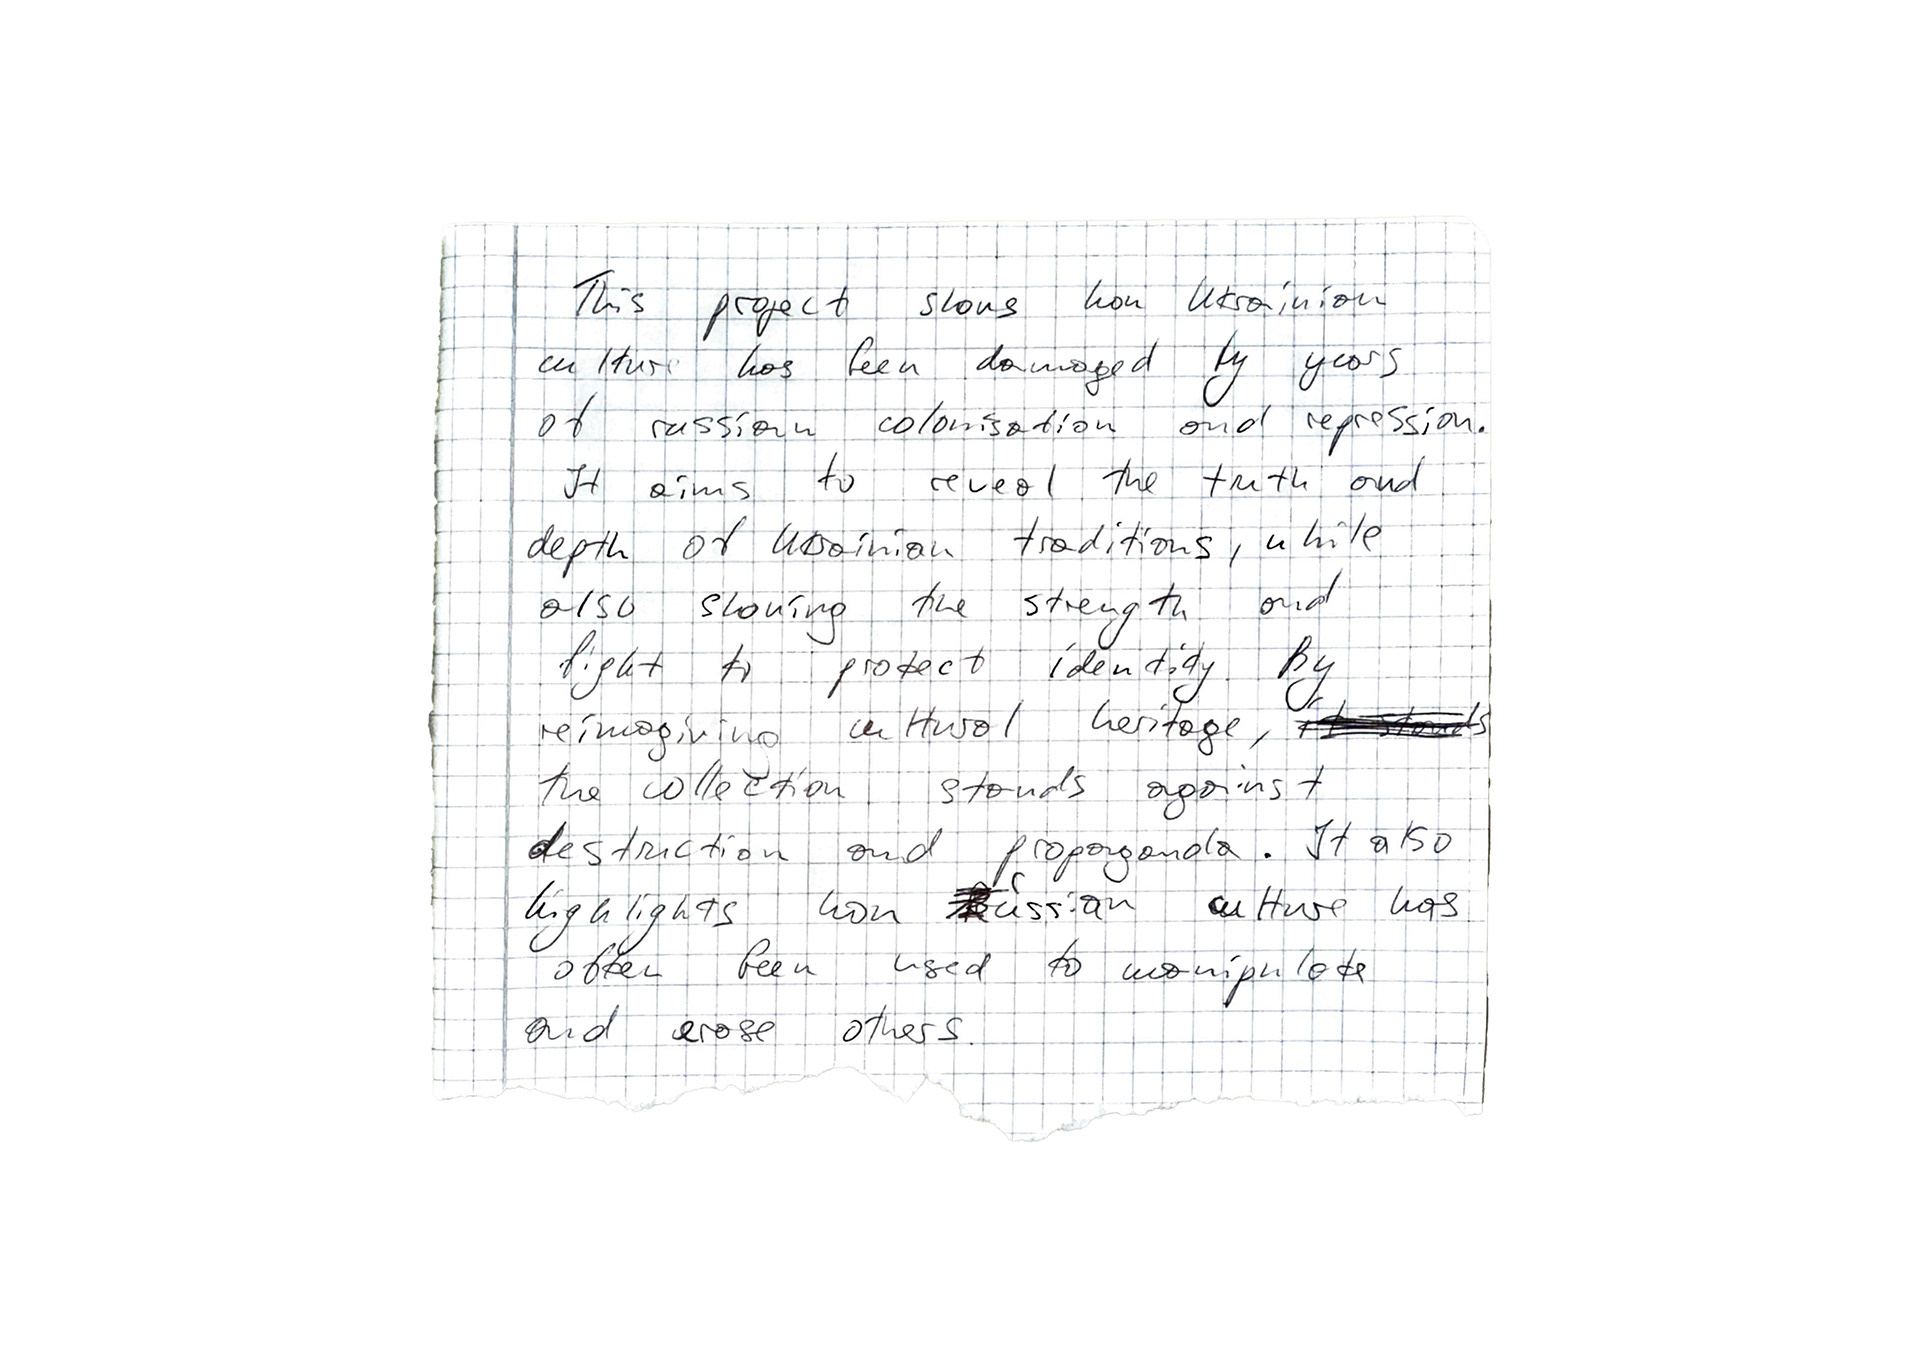 This project shows how Ukrainian
culture has been damaged by years
of russian colonisation and repression.
It aims to reveal the truth and
depth of Ukrainian traditions, while
also showing the strength and
fight to protect identity. By
reimagining cultural heritage, it stands
the collection stands against
destruction and propaganda. It also
highlights how russian culture has
often been used to manipulate
and erase others.